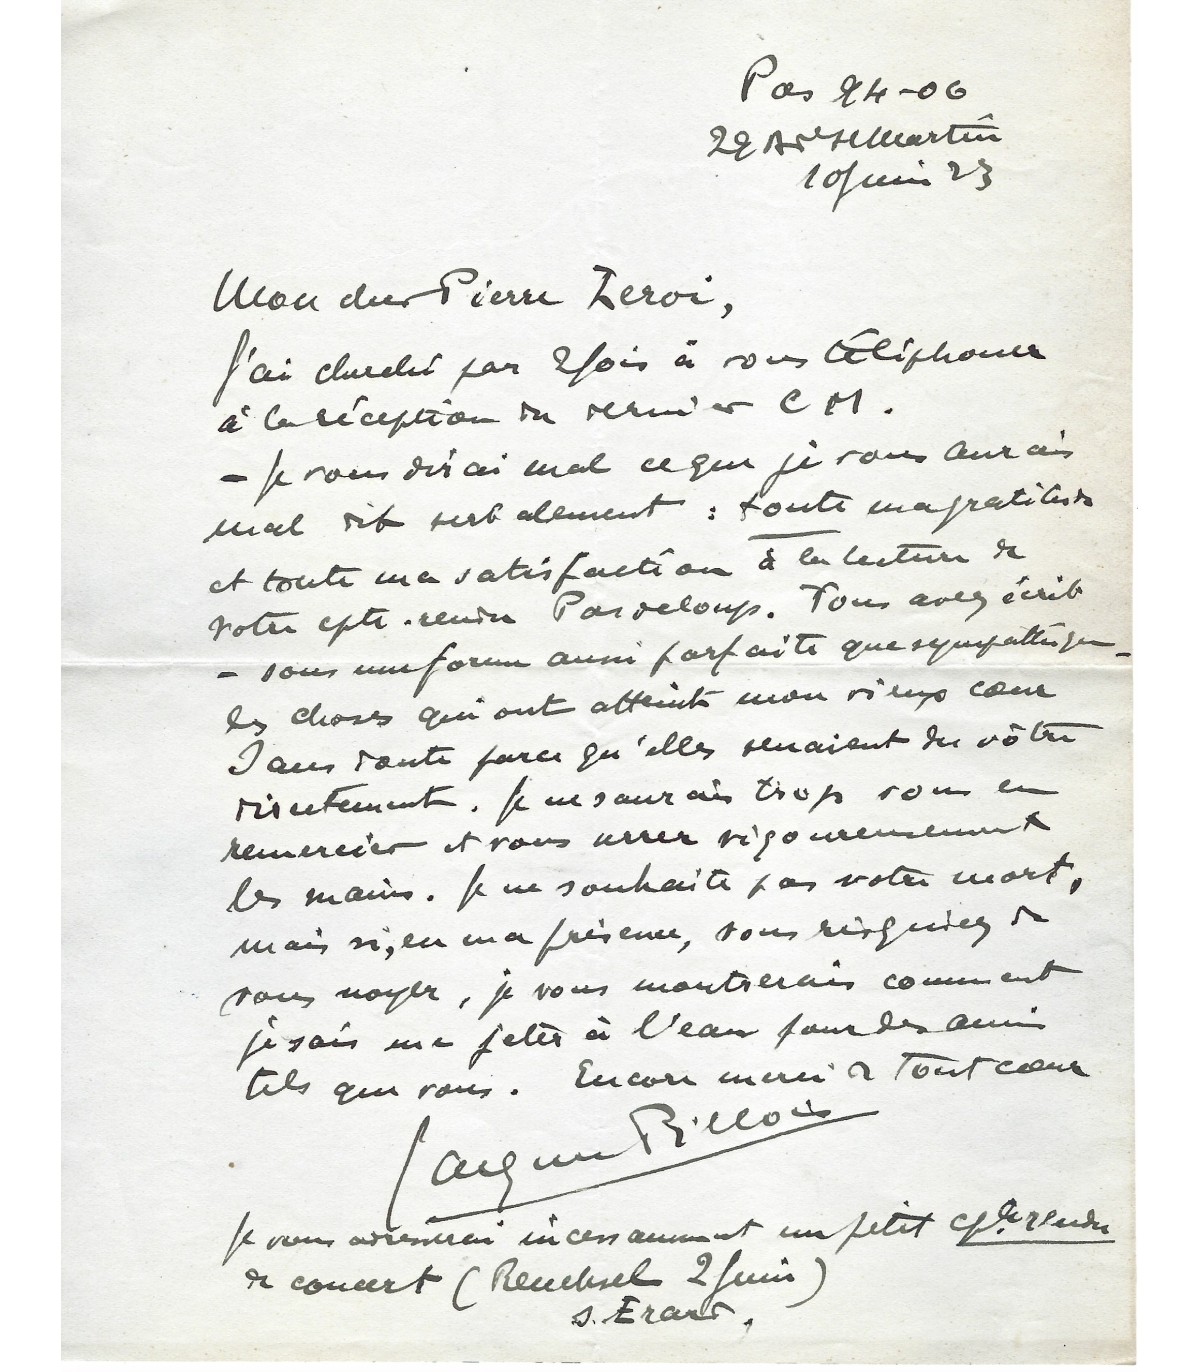 Pas 94-06
29 Bd St Martin
10 Juin 23
Mon cher Pierre Leroi,
J'ai cherché par 2 fois à vous téléphoner
à la réception du dernier C M.
– Je vous dirai mal ce que je vous aurais
mal dit verbalement : toute ma gratitude
et toute ma satisfaction à la lecture de
votre cpte. rendu Pasdeloup. Vous avez écrit
– sous une forme aussi parfaite que sympathique –
les choses qui ont atteint mon vieux cœur
sans doute parce qu'elles venaient du vôtre
directement. Je ne saurais trop vous en
remercier et vous serrer vigoureusement
les mains. Je ne souhaite pas votre mort,
mais si, en ma présence, vous risquiez de
vous noyer, je vous montrerais comment
je sais me jeter à l'eau pour des amis
tels que vous. Encore merci de tout cœur
Jacques Pillois
Je vous adresserai incessamment un petit cpte rendu
de concert (Reuchsel 2 Juin)
s. Erard.